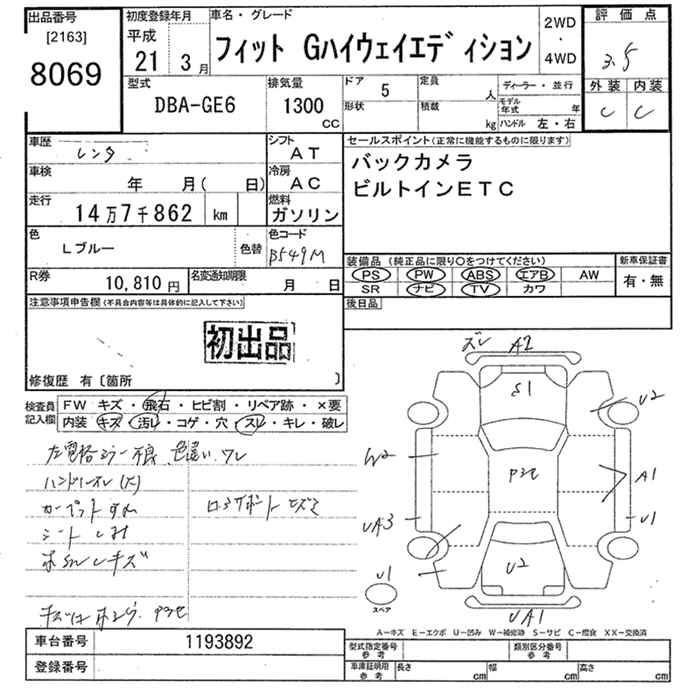 出品番号
[2163]
8069
初度登録年月
平成
21 3月
車名・グレード
フィット Gハイウェイエディション
2WD
・
4WD
評価点
3.5
外装 内装
C C
型式
DBA-GE6
排気量
1300
CC
ドア
5
形状
定員
人
積載
kg
ディーラー・並行
モデル年式 年
ハンドル 左・右
車歴
レンタ
シフト
AT
車検
年 月( 日)
冷房
AC
走行
14万7千862 km
燃料
ガソリン
色
Lブルー
色替
色コード
B549M
R券
10,810 円
名変通知期限
月 日
セールスポイント(正常に機能するものに限ります)
バックカメラ
ビルトインETC
装備品(純正品に限り○をつけてください)
PS PW ABS エアB AW
SR ナビ TV カワ
新車保証書
有・無
後日品
注意事項申告欄(不具合内容等は具体的に記入して下さい)
初出品
修復歴 有〔箇所 〕
検査員記入欄
FW キズ・飛石・ヒビ割・リペア跡・×要
内装 キズ・汚レ・コゲ・穴・スレ・キレ・破レ
カーペット
シート
ズレ A2
S1
U2
W2
A1
UA3
U1
U2
U1
スペア
UA1
A−キズ E−エクボ U−凹み W−補修跡 S−サビ C−腐食 XX−交換済
車台番号
1193892
登録番号
型式指定番号
参考
類別区分番号
参考
車庫証明用
参考
長さ cm
幅 cm
高さ cm